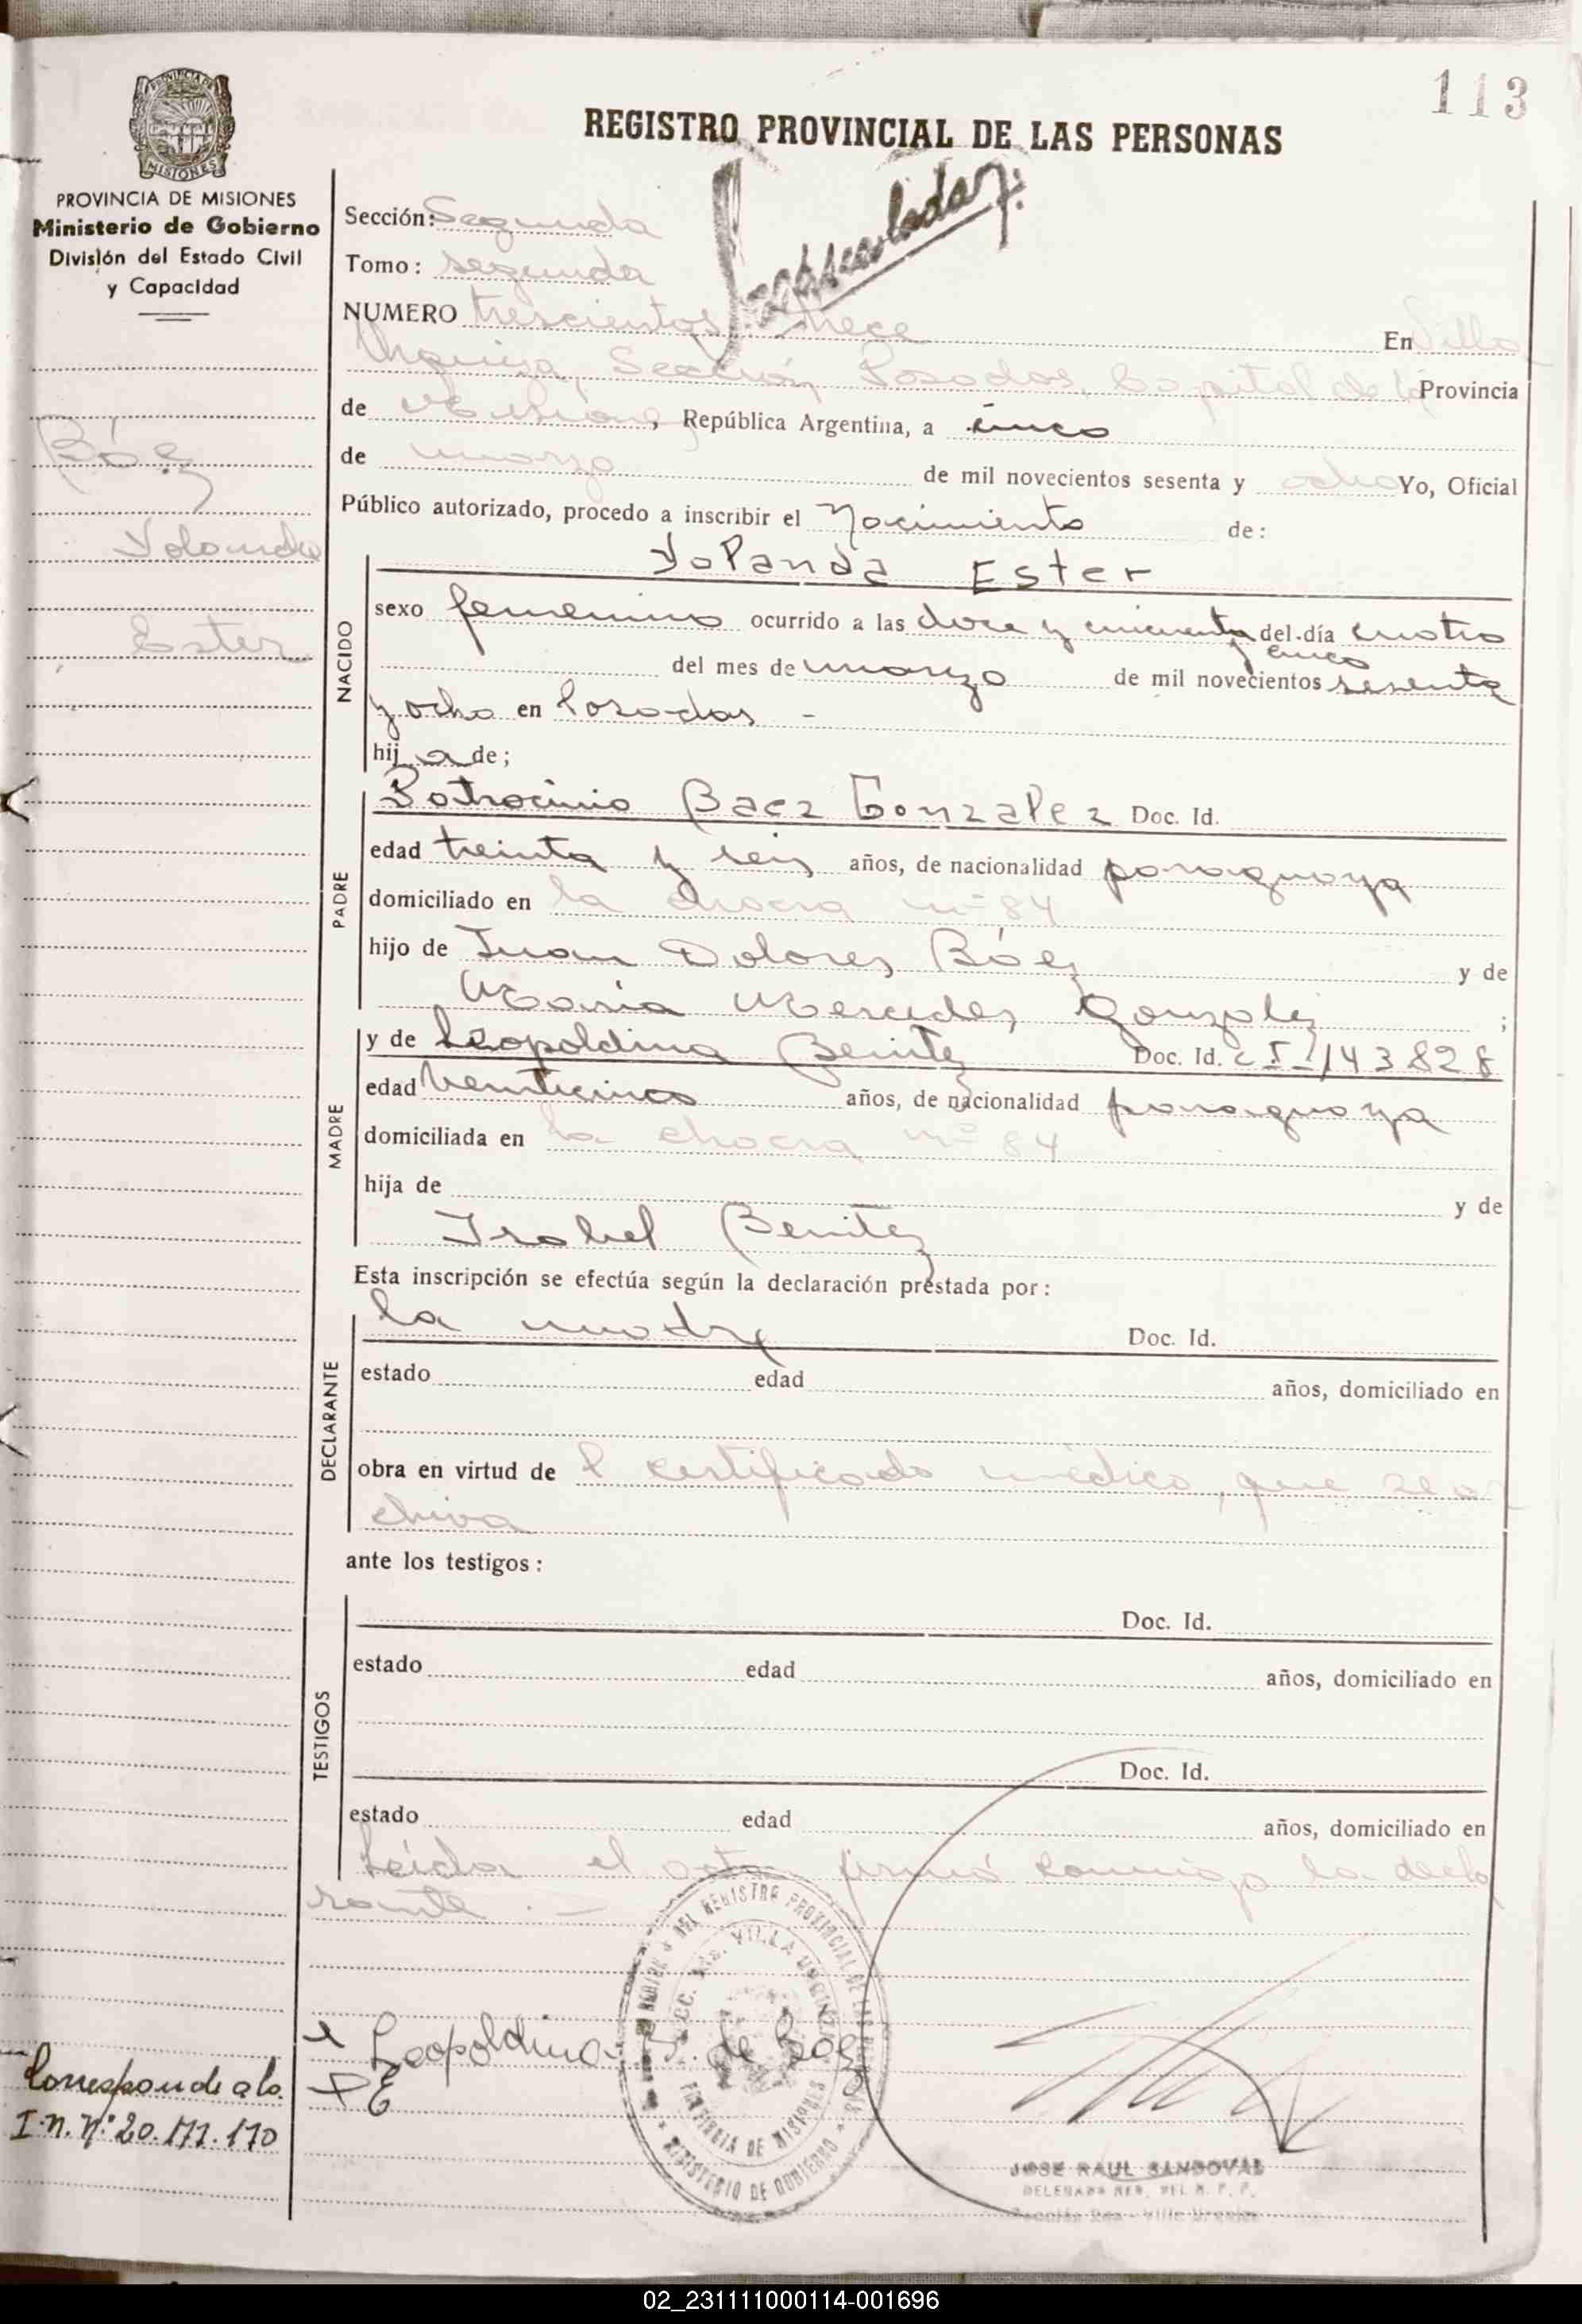 113
REGISTRO PROVINCIAL DE LAS PERSONAS
PROVINCIA DE MISIONES
MISIONES
Ministerio de Gobierno
División del Estado Civil
y Capacidad
Sección: Segunda
Tomo: segundo
NUMERO trescientos trece En Villa
Urquiza, Sección Posadas, Capital de la Provincia
de Misiones, República Argentina, a cinco
de marzo de mil novecientos sesenta y ocho Yo, Oficial
Público autorizado, procedo a inscribir el Nacimiento de:
Báez
Yolanda
Ester
NACIDO
Yolanda Ester
sexo femenino ocurrido a las doce y cincuenta y cinco del día cuatro
del mes de marzo de mil novecientos sesenta
y ocho en Posadas -
hija de;
PADRE
Patrocinio Baez Gonzalez Doc. Id.
edad treinta y seis años, de nacionalidad paraguaya
domiciliado en la chacra nº 84
hijo de Juan Dolores Báez y de
María Mercedes González ;
MADRE
y de Leopoldina Benítez Doc. Id. C.I. 143828
edad veinticinco años, de nacionalidad paraguaya
domiciliada en la chacra nº 84
hija de y de
Isabel Benítez
Esta inscripción se efectúa según la declaración prestada por:
DECLARANTE
la madre Doc. Id.
estado edad años, domiciliado en
obra en virtud de l certificado médico, que se ar
chiva
ante los testigos:
TESTIGOS
Doc. Id.
estado edad años, domiciliado en
Doc. Id.
estado edad años, domiciliado en
Leída el acta firmó conmigo la decla
rante. -
Leopoldina B. de Baez
Corresponde a la
I.n. Nº: 20.177.170
REGISTRO PROVINCIAL DE LAS PERSONAS
VILLA URQUIZA
PROVINCIA DE MISIONES
MINISTERIO DE GOBIERNO
JOSE RAUL SANDOVAL
02_231111000114-001696